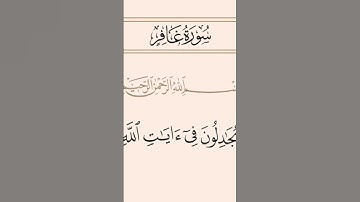 سُورَةُ غَافِرٍ
ـسْمِ ٱللَّهِ ٱلرَّحْمَٰنِ ٱلرَّحِيمِ
يُجَٰدِلُونَ فِىٓ ءَايَٰتِ ٱللَّهِ